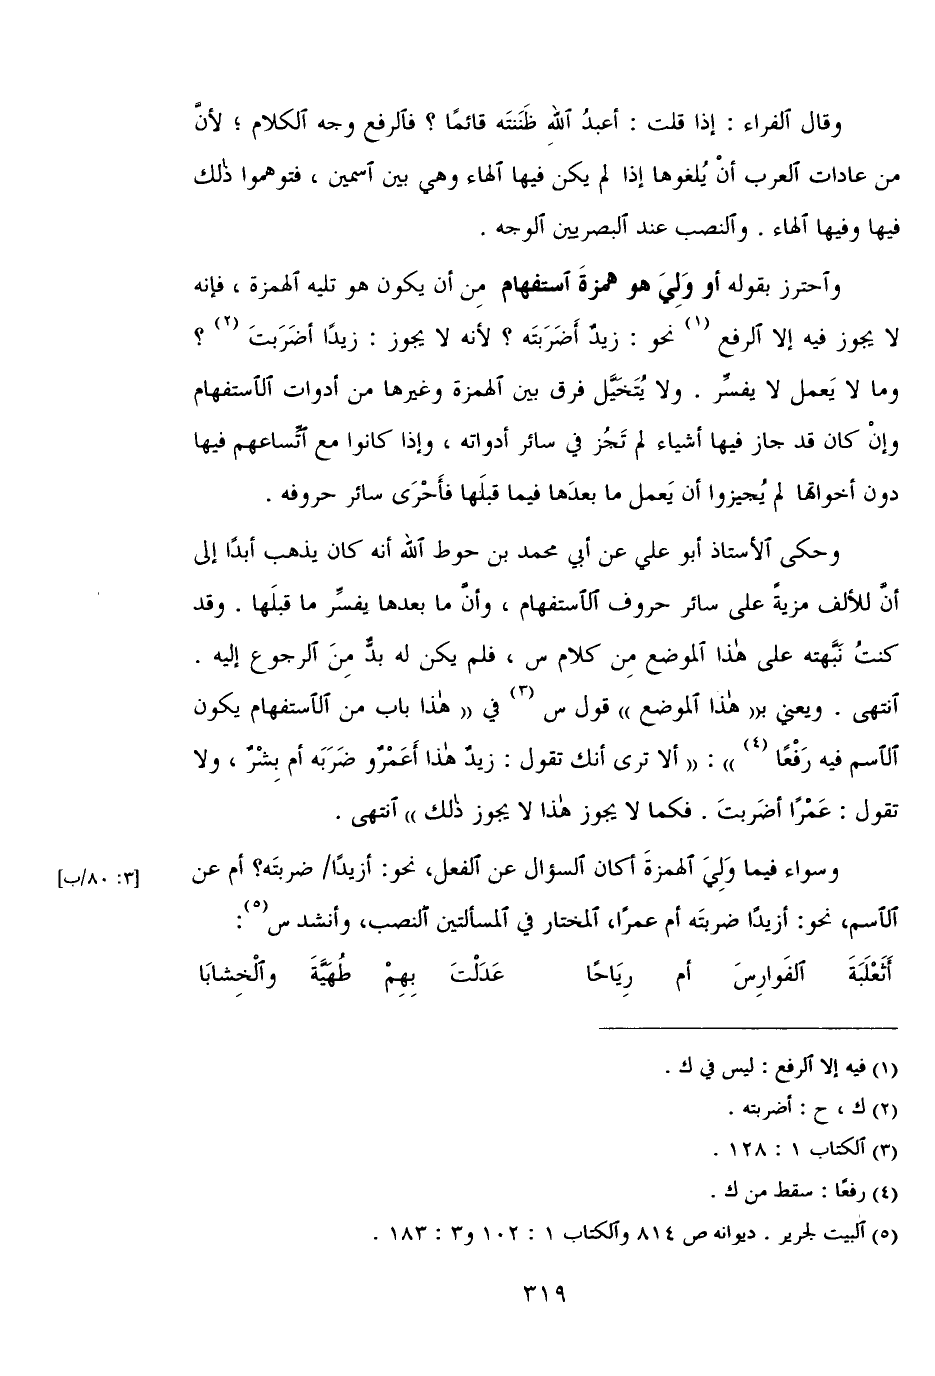 وقال ٱلفراء : إذا قلت : أعبدُ ٱللهِ ظَنَنتَه قائمًا ؟ فٱلرفع وجه ٱلكلام ؛ لأنَّ
من عادات ٱلعرب أنْ يُلغوها إذا لم يكن فيها ٱلهاء وهي بين ٱسمين ، فتوهموا ذٰلك
فيها وفيها ٱلهاء . وٱلنصب عند ٱلبصريين ٱلوجه .
وٱحترز بقوله أو وَلِيَ هو همزةَ ٱستفهام مِن أن يكون هو تليه ٱلهمزة ، فإنه
لا يجوز فيه إلا ٱلرفع (١) نحو : زيدٌ أَضَرَبتَه ؟ لأنه لا يجوز : زيدًا أضَرَبتَ (٢) ؟
وما لا يَعمل لا يفسِّر . ولا يُتَخَيَّل فرق بين ٱلهمزة وغيرها من أدوات ٱلٱستفهام
وإنْ كان قد جاز فيها أشياء لم تَجُز في سائر أدواته ، وإذا كانوا مع ٱتِّساعهم فيها
دون أخواتها لم يُجيزوا أن يَعمل ما بعدَها فيما قبلَها فأَحْرَى سائر حروفه .
وحكى ٱلأستاذ أبو علي عن أبي محمد بن حوط ٱللّٰه أنه كان يذهب أبدًا إلى
أنَّ للألف مزيةً على سائر حروف ٱلٱستفهام ، وأنَّ ما بعدها يفسِّر ما قبلَها . وقد
كنتُ نَبَّهته على هٰذا ٱلموضع مِن كلام س ، فلم يكن له بدٌّ مِنَ ٱلرجوع إليه .
ٱنتهى . ويعني بـ(( هٰذا ٱلموضع )) قول س (٣) في (( هٰذا باب من ٱلٱستفهام يكون
ٱلٱسم فيه رَفْعًا (٤) )) : (( ألا ترى أنك تقول : زيدٌ هٰذا أَعَمْرٌو ضَرَبَه أم بِشْرٌ ، ولا
تقول : عَمْرًا أضَربتَ . فكما لا يجوز هٰذا لا يجوز ذٰلك )) ٱنتهى .
وسواء فيما وَلِيَ ٱلهمزةَ أكان السؤال عن ٱلفعل، نحو: أزيدًا/ ضربتَه؟ أم عن [٣: ٨٠/ب]
ٱلٱسم، نحو: أزيدًا ضربتَه أم عمرًا، ٱلمختار في ٱلمسألتين ٱلنصب، وأنشد س(٥):
أَثَعْلَبَةَ ٱلفَوارِسَ أم رِيَاحًا عَدَلْتَ بِهِمْ طُهَيَّةَ وٱلْخِشابَا
(١) فيه إلا ٱلرفع : ليس في ك .
(٢) ك ، ح : أضربته .
(٣) ٱلكتاب ١ : ١٢٨ .
(٤) رفعًا : سقط من ك .
(٥) ٱلبيت لجرير . ديوانه ص ٨١٤ وٱلكتاب ١ : ١٠٢ و٣ : ١٨٣ .
٣١٩